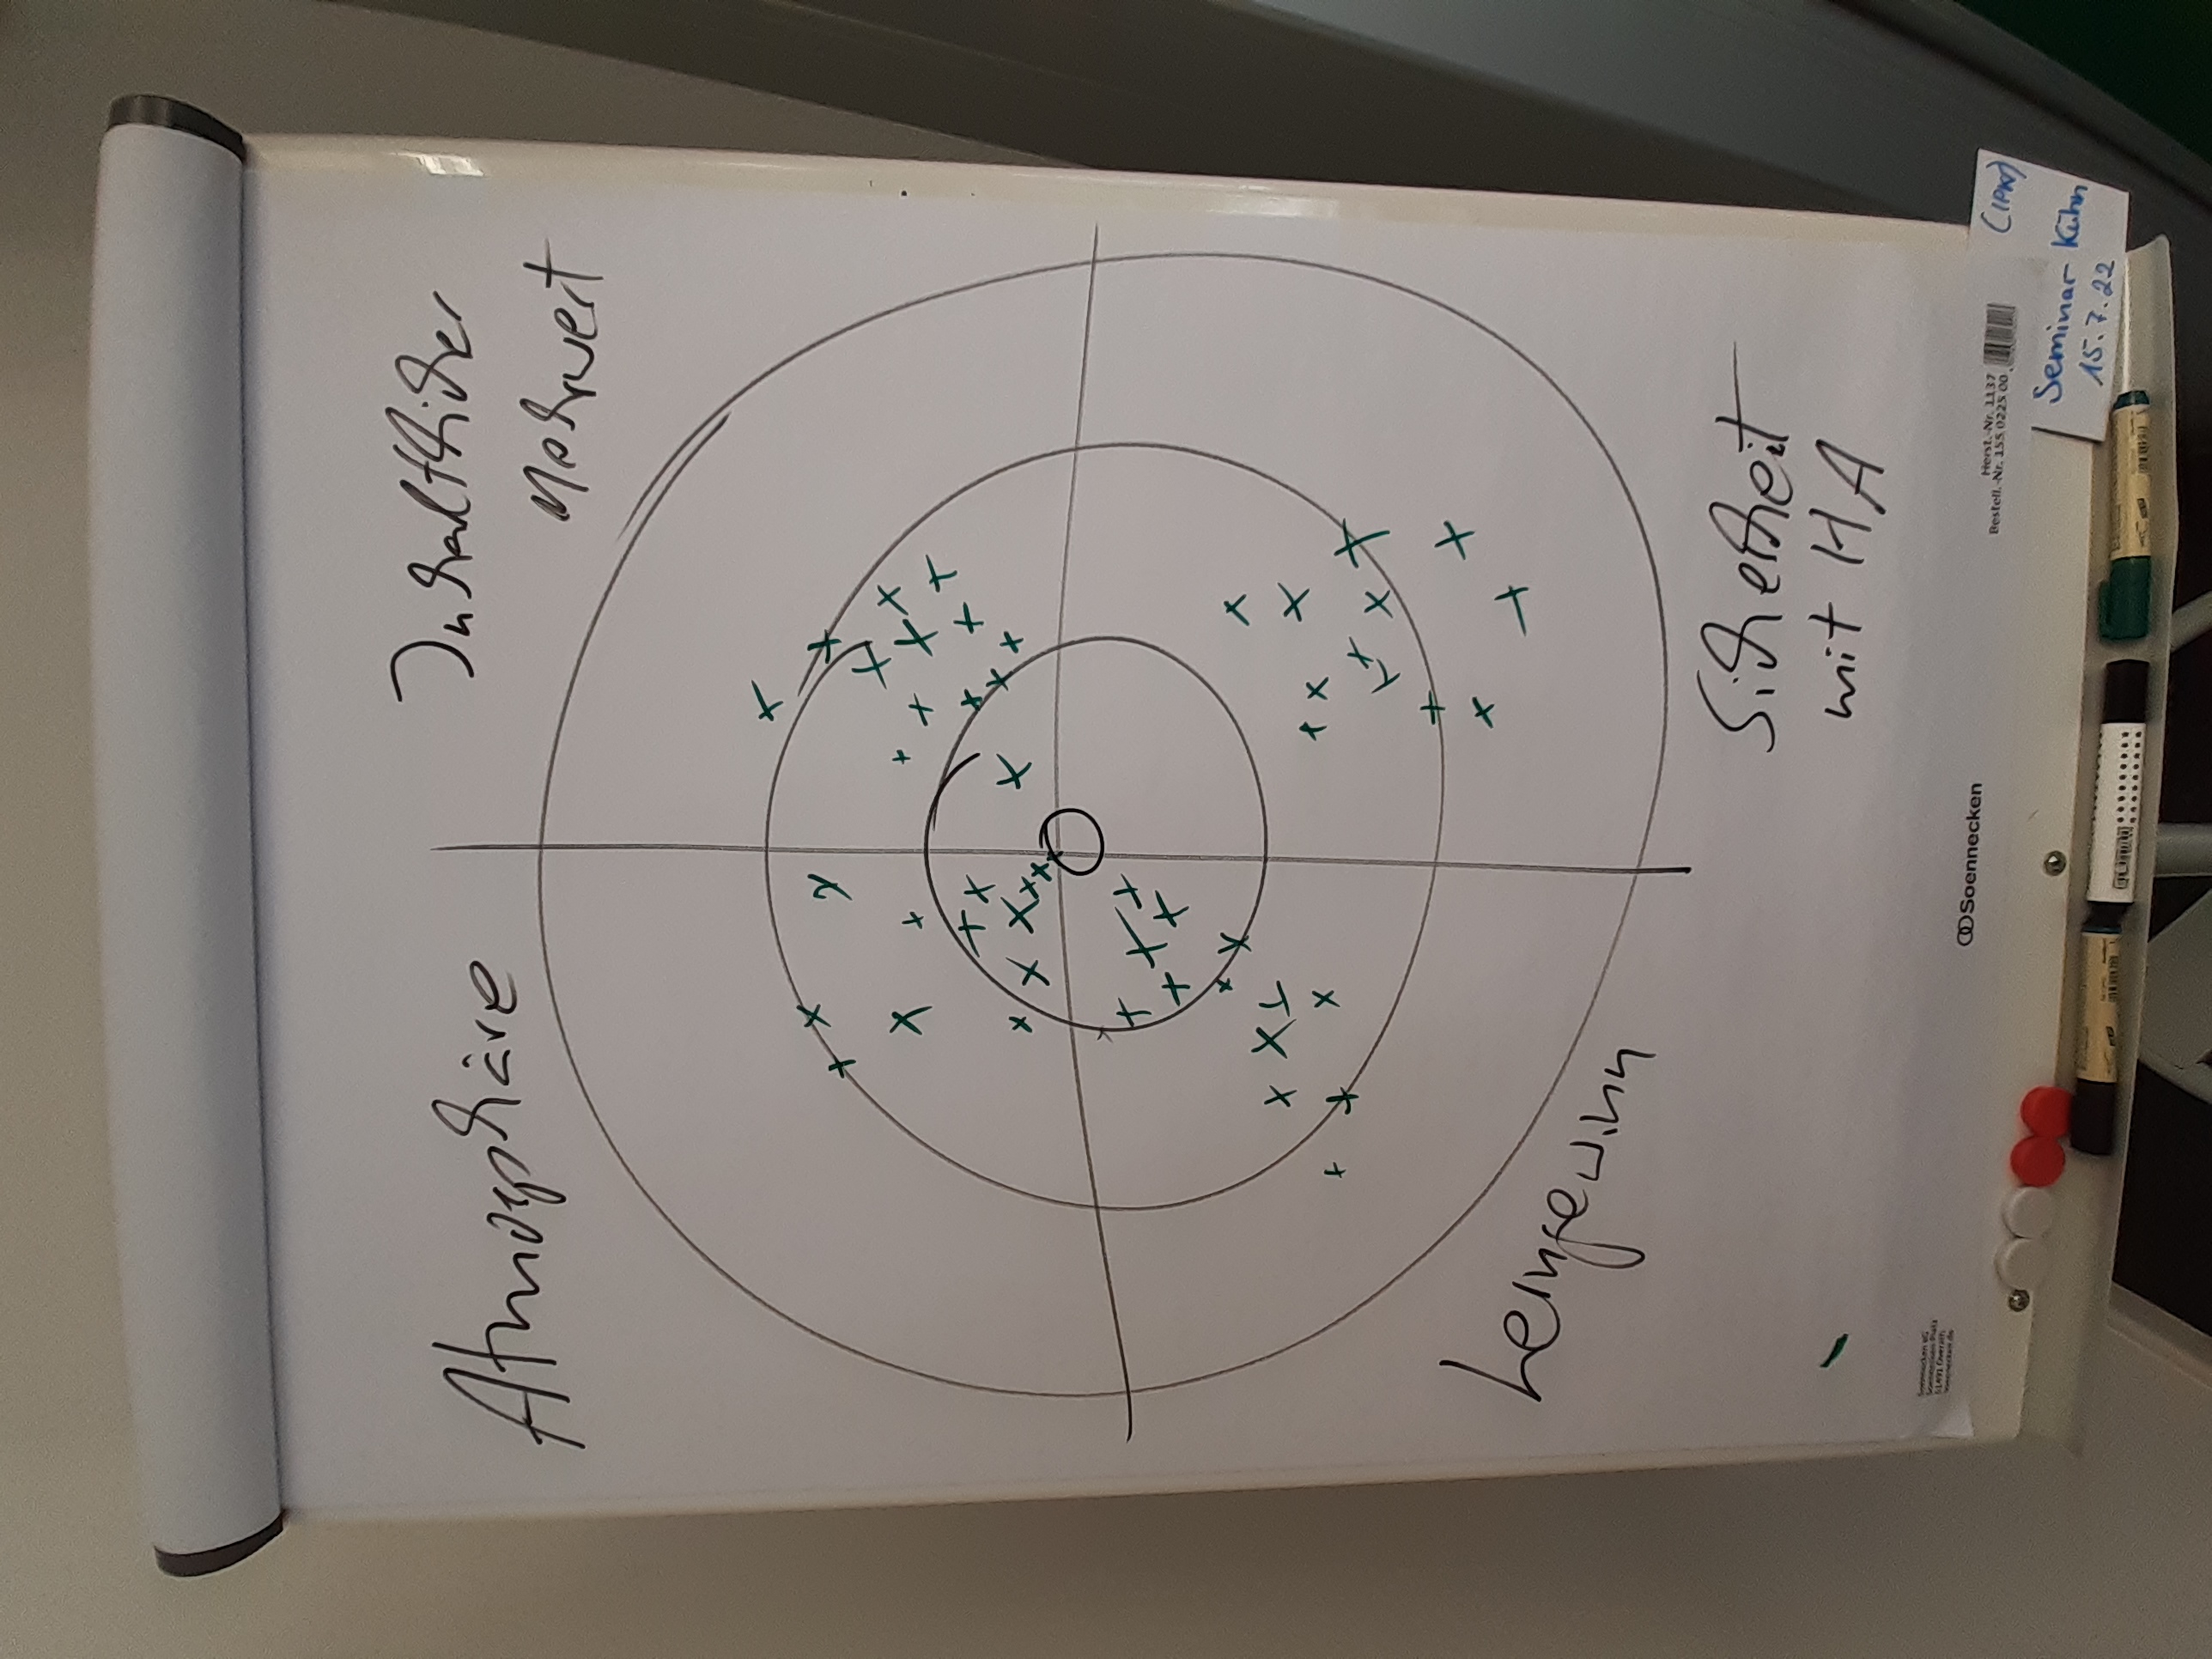 Atmosphäre
Inhaltlicher
Mehrwert
Lerngewinn
Sicherheit
mit HA
Soennecken eG
Soennecken-Platz
51491 Overath
soennecken.de
Soennecken
Herst.-Nr. 1137
Bestell.-Nr. 155 0225 00
(IPW)
Seminar Kühn
15.7.22